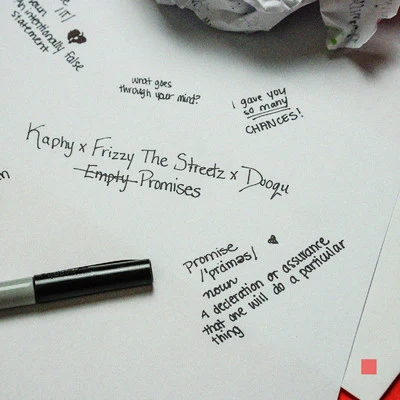 noun
An intentionally false
statement
what goes
through your mind?
i gave you
so many
CHANCES!
Kaphy x Frizzy The Streetz x Dooqu
Empty Promises
Promise
/'präməs/
noun
A decleration or assurance
that one will do a particular
thing